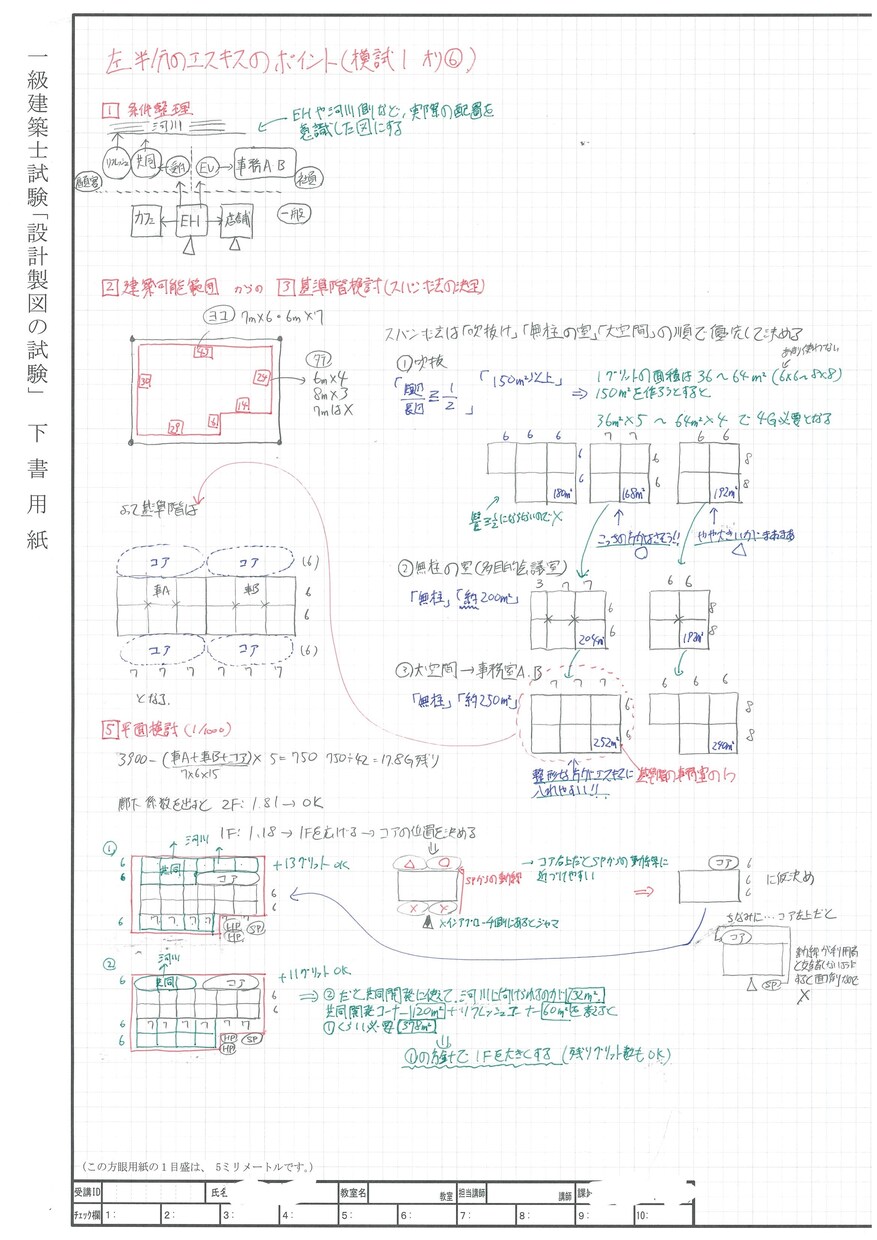 一級建築士試験「設計製図の試験」 下書用紙
左半分のエスキスのポイント(模試1 オリ⑥)
1 条件整理
河川
EHや河川側など、実際の配置を
意識した図にする
リフレッシュ
共同
受付
EV
事務A.B
社員
カフェ
EH
店舗
一般
2 建築可能範囲 からの 3 基準階検討(スパン寸法の決定)
ヨコ 7m×6・6m×7
43
30
24
14
6
29
タテ
6m×4
8m×3
7mは×
スパン寸法は「吹抜け」「無柱の室」「大空間」の順で優先して決める
あまり使わない
①吹抜
「短辺/長辺≧1/2」
「150m²以上」
⇒ 1グリットの面積は36~64m² (6×6~8×8)
150m²を作ろうとすると
36m²×5 ~ 64m²×4 で 4G必要となる
6 6 6
6
6
180m²
7 7
6
6
168m²
6 6
8
8
192m²
≧1/2にならないので×
こっちの方がよさそう!! ○
やや大きいがまあまあ △
よって基準階は
コア
コア
(6)
事A
事B
6
6
コア
コア
(6)
7 7 7 7 7 7
となる.
②無柱の室(多目的会議室)
「無柱」「約200m²」
3 7 7
6
6
204m²
6 6
8
8
192m²
③大空間→事務室A.B
「無柱」「約250m²」
7 7 7
6
6
252m²
6 6 6
8
8
240m²
整形な方がエスキスに
入れやすい!!
基準階の事務室の1つ
5 平面検討(1/1000)
3900-(事A+事B+コア)×5=750 750÷42=17.8G残り
7×6×15
廊下係数を出すと 2F: 1.81→OK
1F: 1.18→1Fを広げる→コアの位置を決める
①
河川
6
6
共同
コア
6
6
6
7 7 7 7 7 7
HP
HP
SP
+13グリット OK
△ ○
× ×
SPからの動線
→コア右上だとSPからの動線に
近づけやすい
×メインアプローチ側にあるとジャマ
⇒
コア
6
6
6
に仮決め
ちなみに…コア左上だと
コア
SP
×
②
河川
6
共同
コア
6
6
7 7 7 7 7 7
6
HP
HP
SP
+11グリット OK
⇒ ②だと共同開発に使えて、河川に向けられるのが132m²
共同開発コーナー120m²+リフレッシュコーナー60m²を考えると
①くらい必要 378m²
①の方針で 1Fを大きくする (残りグリット数もOK)
(この方眼用紙の1目盛は、5ミリメートルです。)
受講ID 氏名 教室名 教室 担当講師 講師
チェック欄 1: 2: 3: 4: 5: 6: 7: 8: 9: 10: